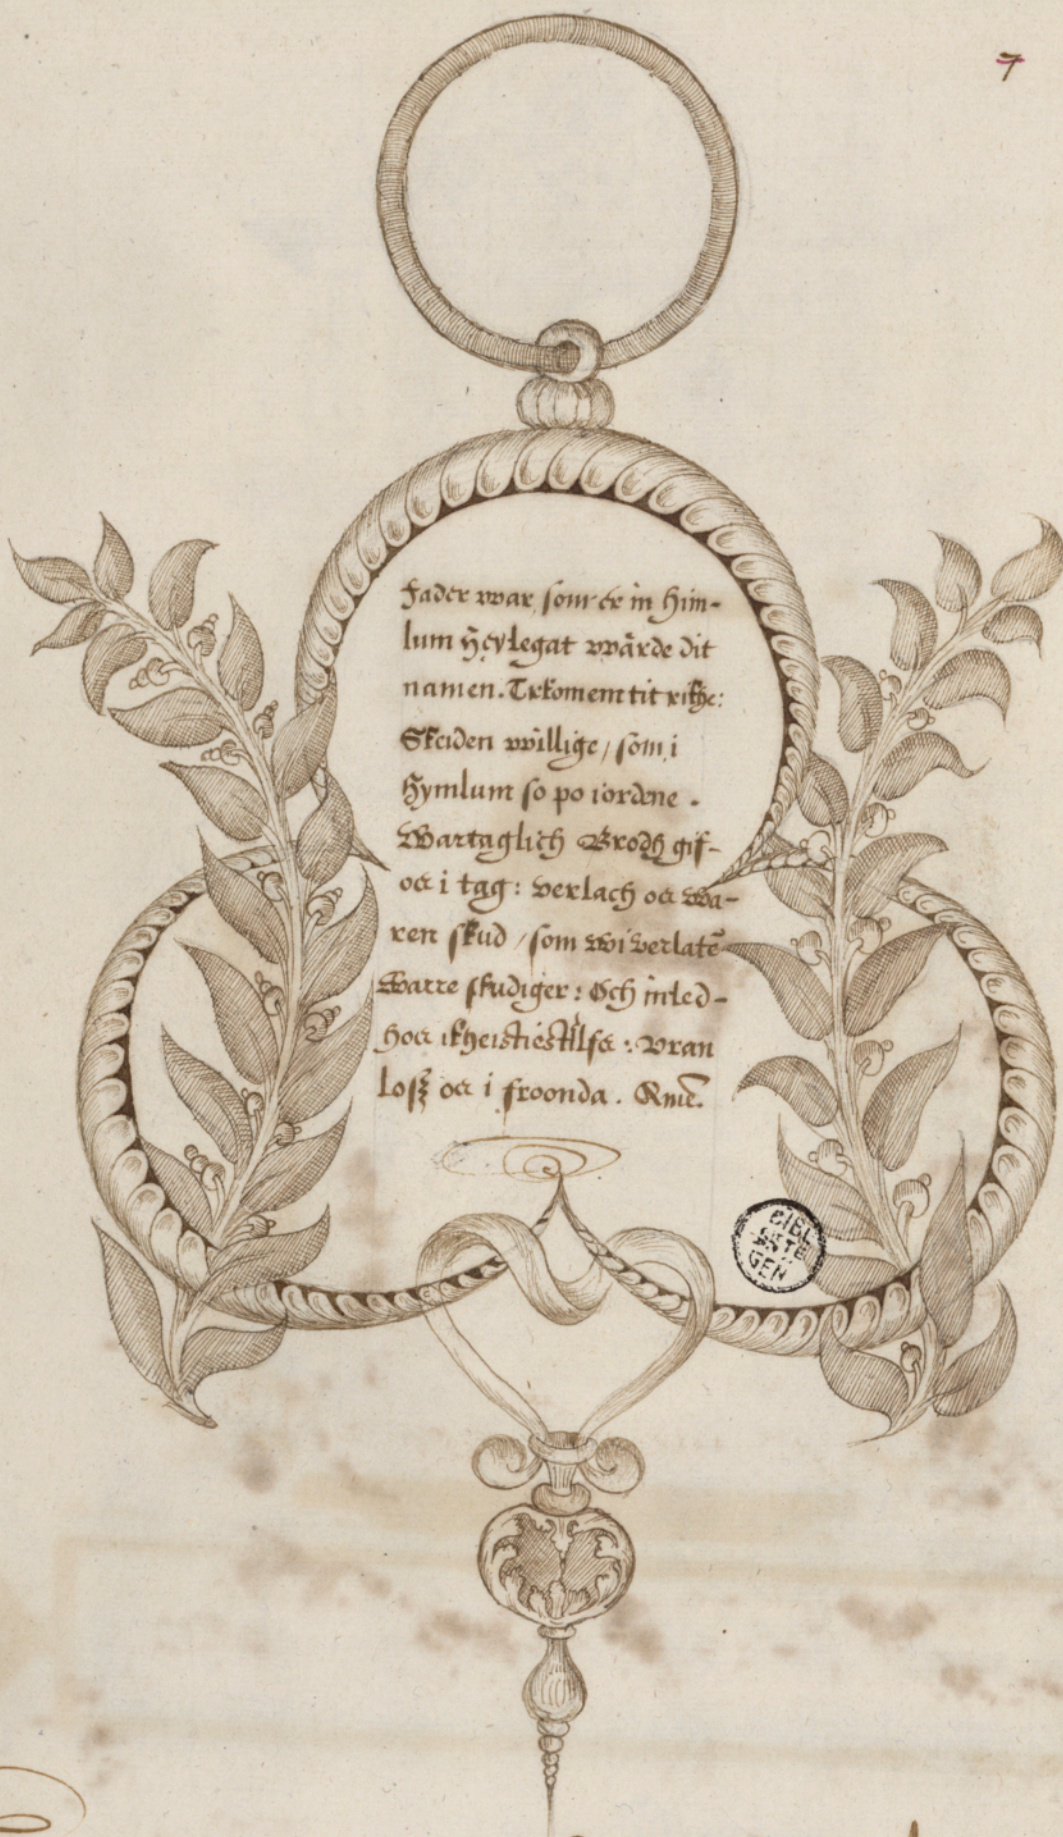 7
Fader vvar som är in Him-
lum Heylegat vvärde dit
namen. Trkomem tit rikhe:
Skeiden vvillige / som i
Hymlum so po iordene.
Wartaglich Brodh gif-
oss i tag: verlach oss wa-
ren skud / som wi verlatē
Warre skudiger: Och inled-
hoss ikhe
vran
losz oss i froonda. Amē.
BIBL
GEN